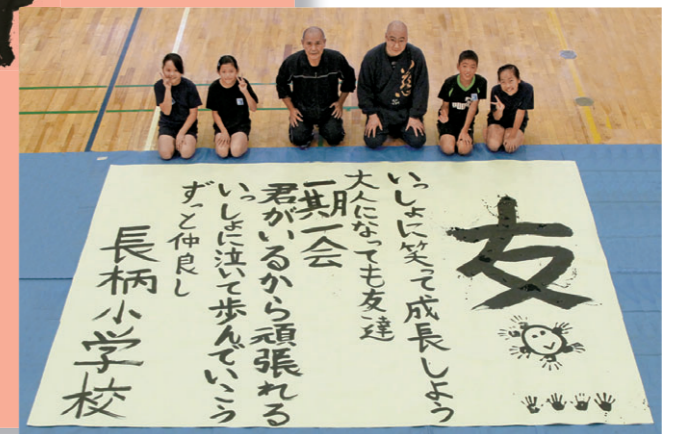 友
いっしょに笑って成長しよう
大人になっても友達
一期一会
君がいるから頑張れる
いっしょに泣いて歩んでいこう
ずっと仲良し
長柄小学校